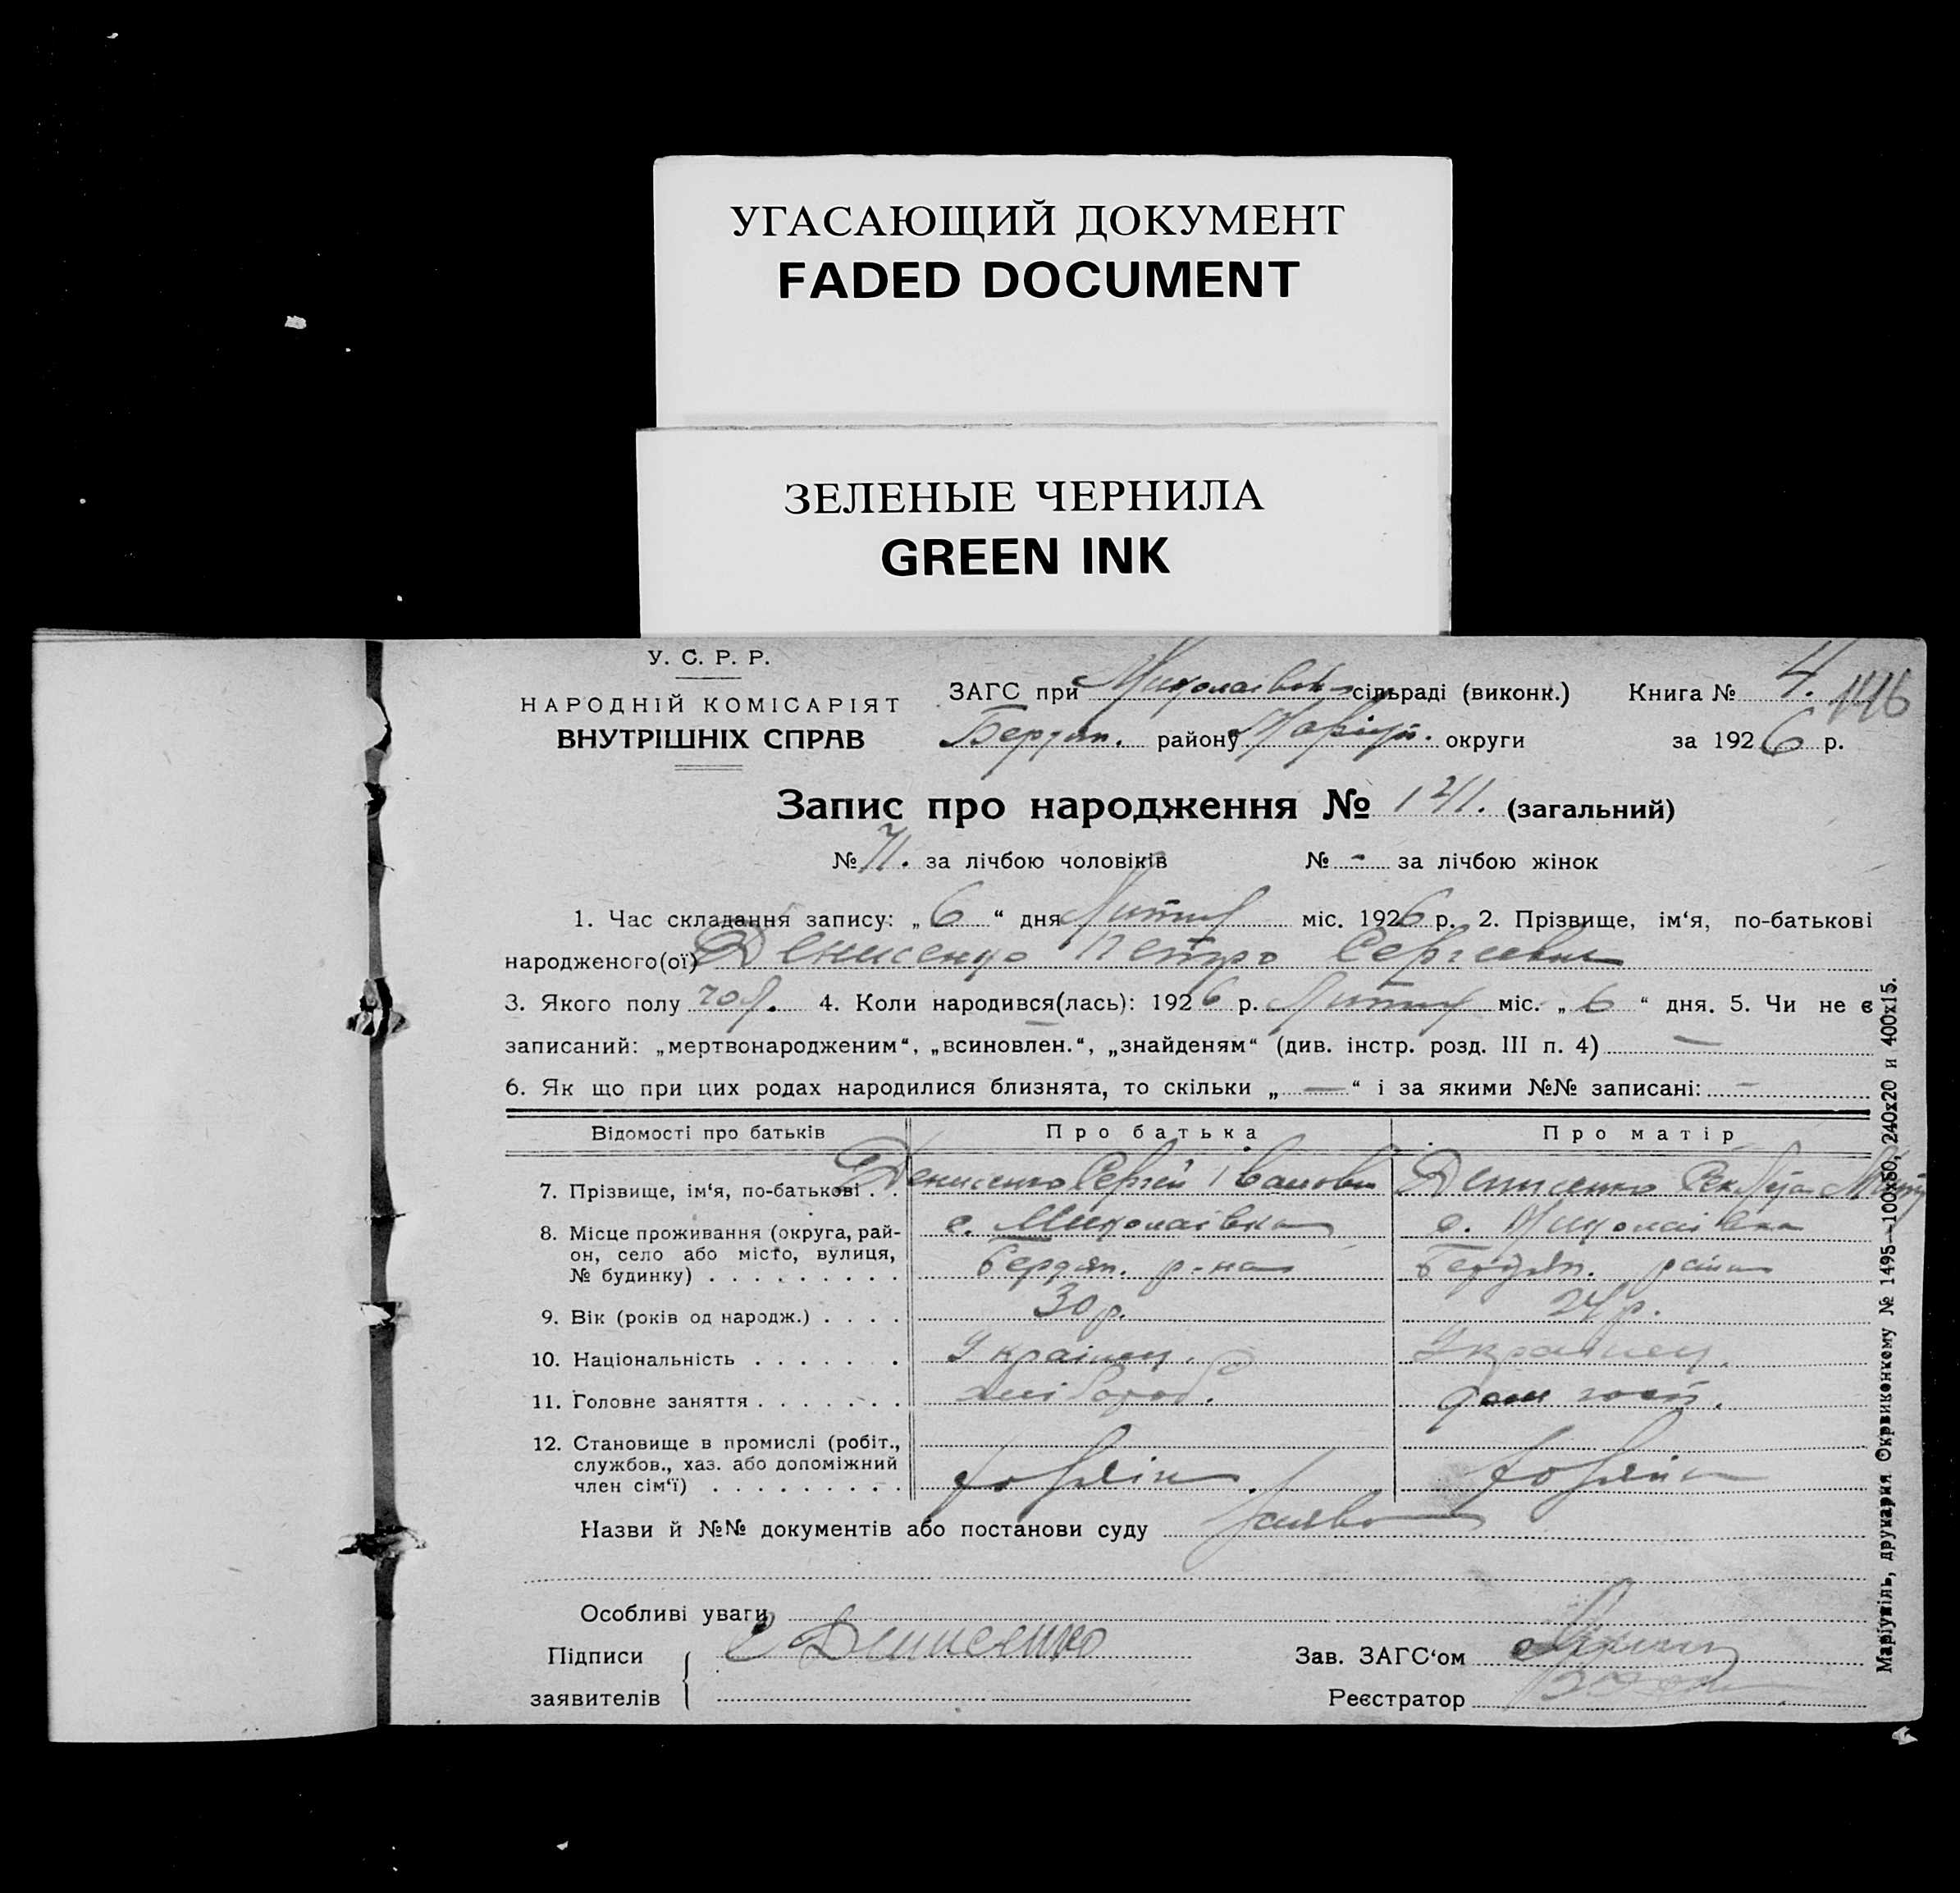 УГАСАЮЩИЙ ДОКУМЕНТ
FADED DOCUMENT
ЗЕЛЕНЫЕ ЧЕРНИЛА
GREEN INK
У. С. Р. Р.
НАРОДНІЙ КОМІСАРІЯТ
ВНУТРІШНІХ СПРАВ
ЗАГС при Миколаївск сільраді (виконк.) Книга № 4. 116
Бердян. району Маріуп. округи за 1926 р.
Запис про народження № 121. (загальний)
№ 71. за лічбою чоловіків № - за лічбою жінок
1. Час складання запису: „ 6 “ дня міс. 1926 р. 2. Прізвище, ім‘я, по-батькові
народженого(ої) Денисенко Петро Сергієвич
3. Якого полу чол. 4. Коли народився(лась): 1926 р. міс. „ 6 “ дня. 5. Чи не є
записаний: „мертвонародженим“, „всиновлен.“, „знайденям“ (див. інстр. розд. III п. 4) —
6. Як що при цих родах народилися близнята, то скільки „ — “ і за якими №№ записані: —
Відомості про батьків Про батька Про матір
7. Прізвище, ім‘я, по-батькові . . Денисенко Сергій Іванович Денисенко
8. Місце проживання (округа, рай- с. Миколаївка с. Миколаївка
он, село або місто, вулиця,
№ будинку) . . . . . . . . . Бердян. р-на Бердян. району
9. Вік (років од народж.) . . . . 30 р. 24 р.
10. Національність . . . . . . . Українец. Українец.
11. Головне заняття . . . . . . . хлібороб. дом госп.
12. Становище в промислі (робіт.,
службов., хаз. або допоміжний
член сім‘ї) . . . . . . . . .
Назви й №№ документів або постанови суду
Особливі уваги
Підписи С Денисенко Зав. ЗАГС‘ом
заявителів Реєстратор
Маріупіль, друкарня Окрвиконкому № 1495—100х50, 240х20 и 400х15.